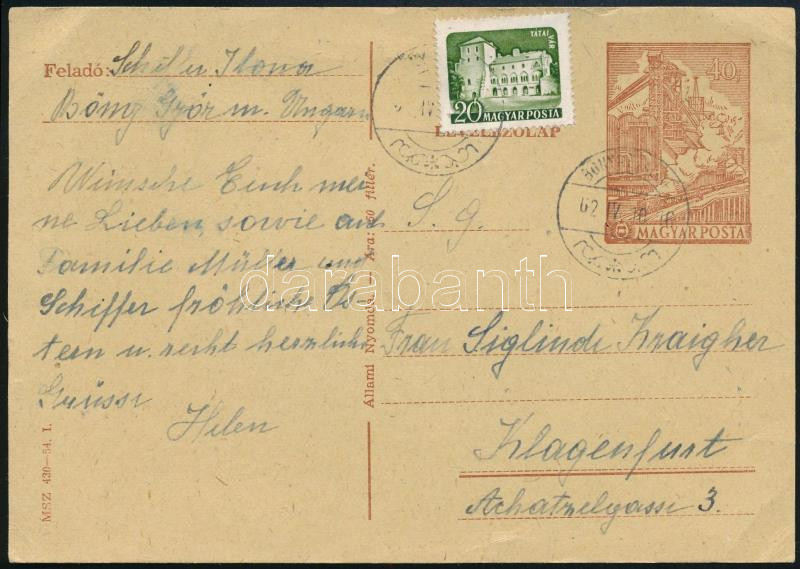 Feladó: Schil u Ilona
Bőny Győr m. Ungarn
Wünsche Euch mei-
ne Lieben, sowie auch
Familie Müller und
Schiffer fröhliche Os-
tern u. recht herzliche
Grüsse
Helen
MSZ 430—54. I.
Állami Nyomda. Ára: 50 fillér.
TATAI VÁR
20 MAGYAR POSTA
LEVELEZŐLAP
40f
MAGYAR POSTA
62 IV. 18
S. g.
Frau Siglinde Kraigher
Klagenfurt
Achatzelgasse 3.
darabanth